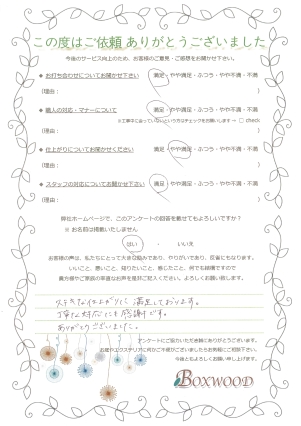 この度はご依頼ありがとうございました
今後のサービス向上のため、お客様のご意見・ご感想をお聞かせ下さい。
◆ お打ち合わせについてお聞かせ下さい 満足・やや満足・ふつう・やや不満・不満
(理由： )
◆ 職人の対応・マナーについて 満足・やや満足・ふつう・やや不満・不満
(理由： )
※工事中に会っていないという方はチェックをお願いします → □ check
◆ 仕上がりについてお聞かせください 満足・やや満足・ふつう・やや不満・不満
(理由： )
◆ スタッフの対応についてお聞かせ下さい 満足・やや満足・ふつう・やや不満・不満
(理由： )
弊社ホームページで、このアンケートの回答を載せてもよろしいですか？
※ お名前は掲載いたしません
はい ・ いいえ
お客様の声は、私たちにとって大きな励みであり、やりがいであり、反省にもなります。
いいこと、悪いこと、知りたいこと、感じたこと、何でも結構ですので
貴方様やご家族の率直なお声を是非ご記入ください。よろしくお願い致します。
ステキな仕上がりに満足しております。
丁寧な対応にも感謝です。
ありがとうございました。
アンケートにご協力いただき誠にありがとうございます。
お庭やエクステリアに何かご不明がございましたらお気軽にご相談下さい。
今後ともよろしくお願い申し上げます。
BOXWOOD